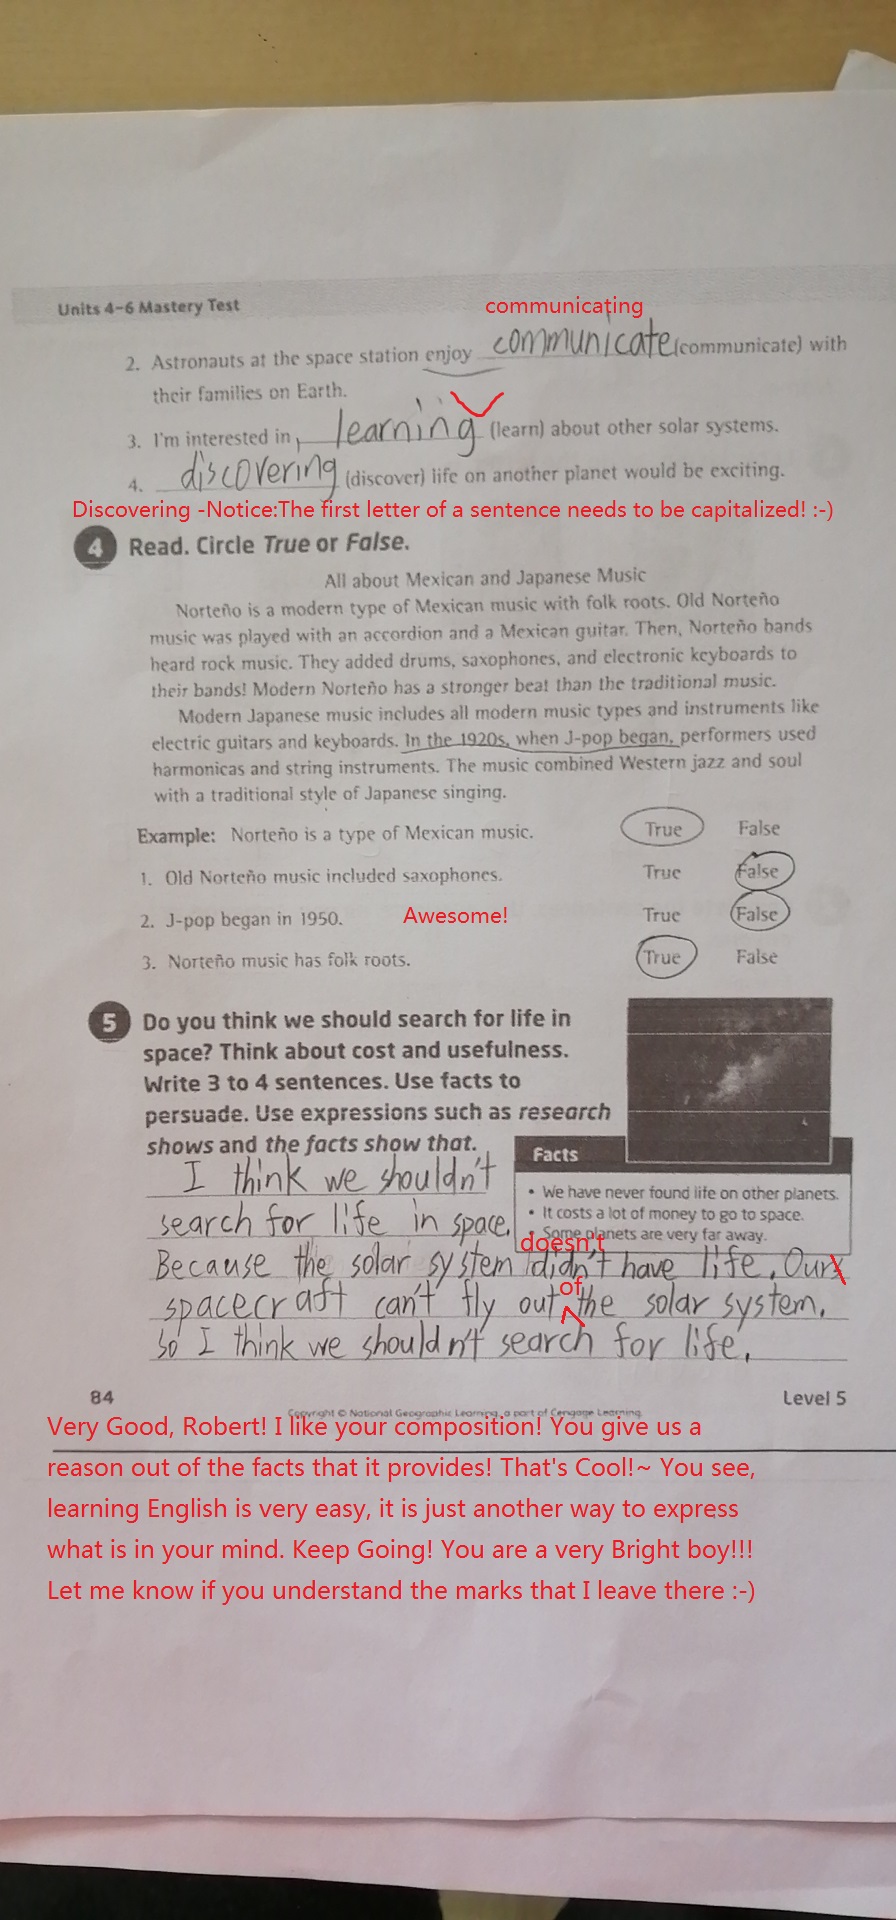 Units 4-6 Mastery Test
communicating
2. Astronauts at the space station enjoy communicate (communicate) with
their families on Earth.
3. I'm interested in learning (learn) about other solar systems.
4. discovering (discover) life on another planet would be exciting.
Discovering -Notice:The first letter of a sentence needs to be capitalized! :-)
4 Read. Circle True or False.
All about Mexican and Japanese Music
Norteño is a modern type of Mexican music with folk roots. Old Norteño
music was played with an accordion and a Mexican guitar. Then, Norteño bands
heard rock music. They added drums, saxophones, and electronic keyboards to
their bands! Modern Norteño has a stronger beat than the traditional music.
Modern Japanese music includes all modern music types and instruments like
electric guitars and keyboards. In the 1920s, when J-pop began, performers used
harmonicas and string instruments. The music combined Western jazz and soul
with a traditional style of Japanese singing.
Example: Norteño is a type of Mexican music. True False
1. Old Norteño music included saxophones. True False
2. J-pop began in 1950. Awesome! True False
3. Norteño music has folk roots. True False
5 Do you think we should search for life in
space? Think about cost and usefulness.
Write 3 to 4 sentences. Use facts to
persuade. Use expressions such as research
shows and the facts show that.
Facts
• We have never found life on other planets.
• It costs a lot of money to go to space.
• Some planets are very far away.
I think we shouldn't
search for life in space.
doesn't
Because the solar system didn't have life. Ours
of
spacecraft can't fly out the solar system.
so I think we shouldn't search for life.
84 Level 5
Copyright © National Geographic Learning, a part of Cengage Learning
Very Good, Robert! I like your composition! You give us a
reason out of the facts that it provides! That's Cool!~ You see,
learning English is very easy, it is just another way to express
what is in your mind. Keep Going! You are a very Bright boy!!!
Let me know if you understand the marks that I leave there :-)